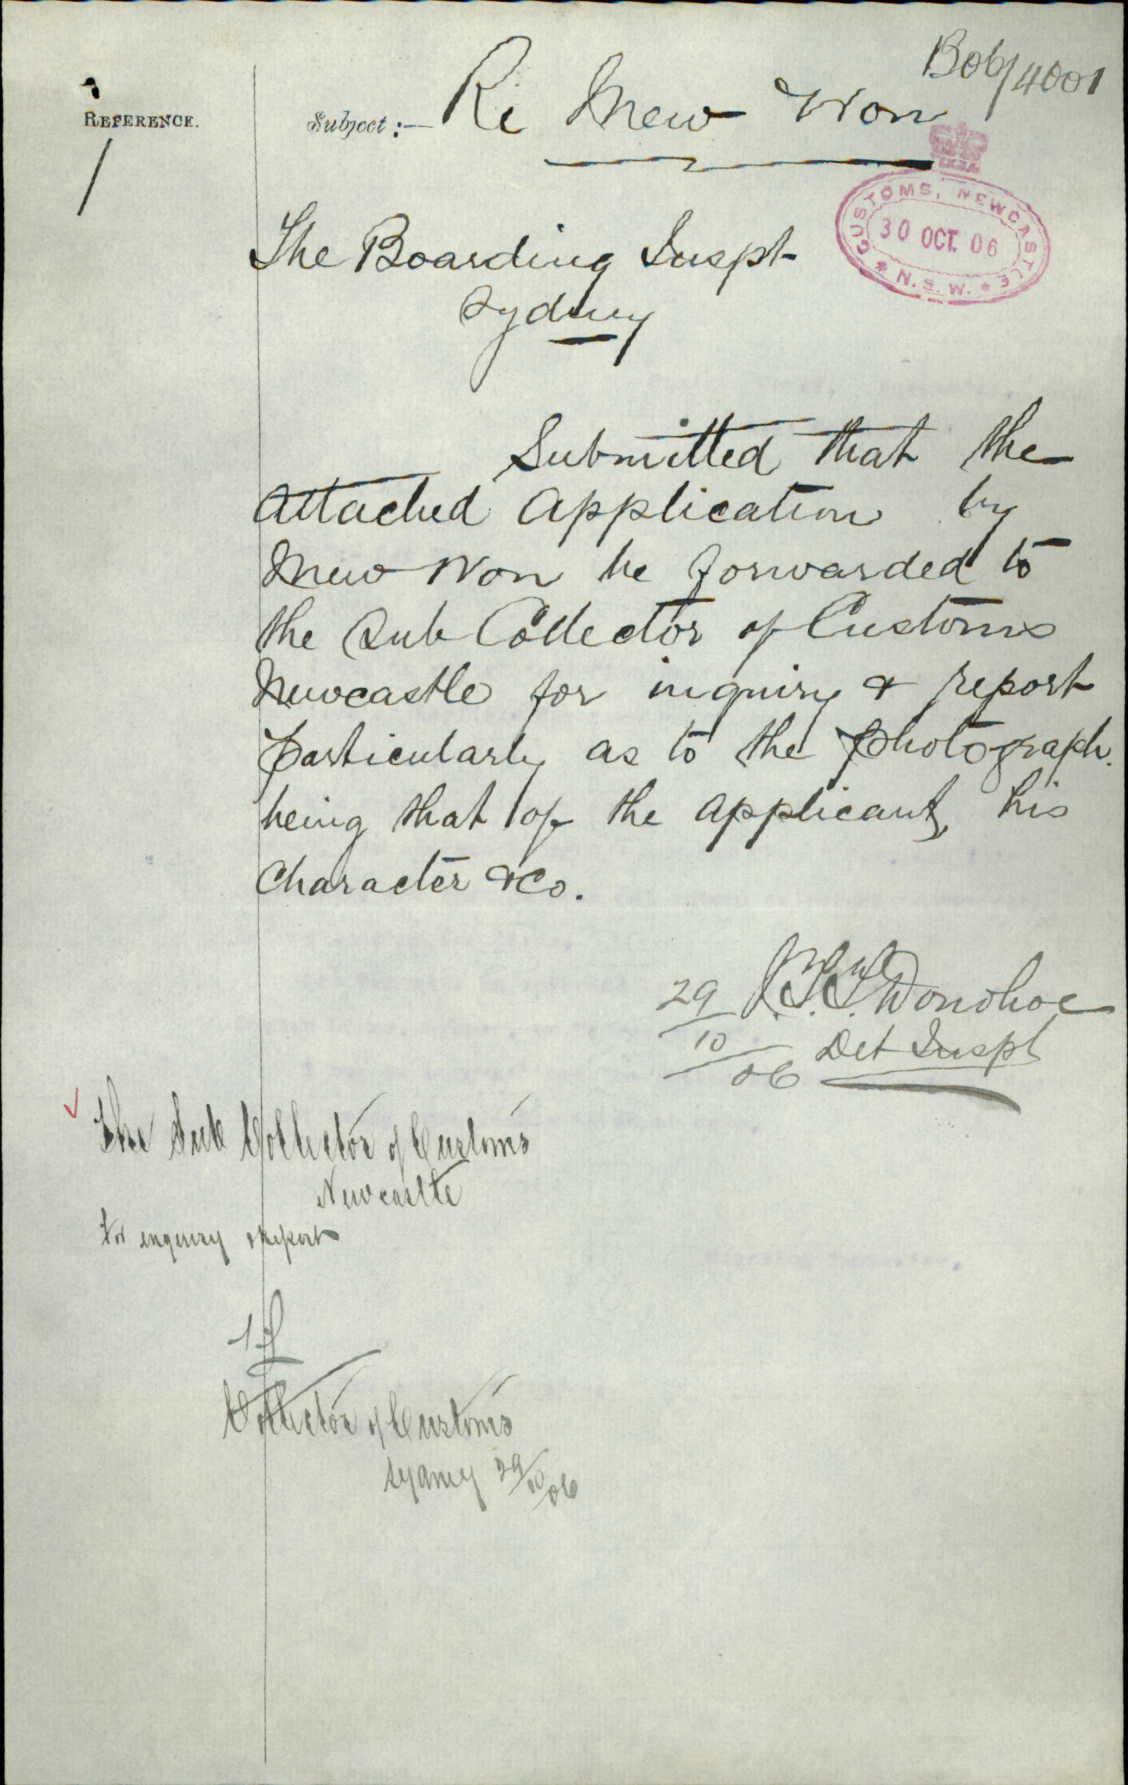 B06/4001
REFERENCE.
Subject :— Re Mew Won
CUSTOMS, NEWCASTLE
30 OCT. 06
* N.S.W. *
The Boarding Inspt
Sydney
Submitted that the
attached application by
Mew Won be forwarded to
the Sub Collector of Customs
Newcastle for inquiry & report
particularly as to the photograph.
being that of the applicant, his
Character &Co.
29/10/06 J.T.T. Donohoe
Det Inspt
The Sub Collector of Customs
Newcastle
for inquiry & report
Collector of Customs
Sydney 29/10/06